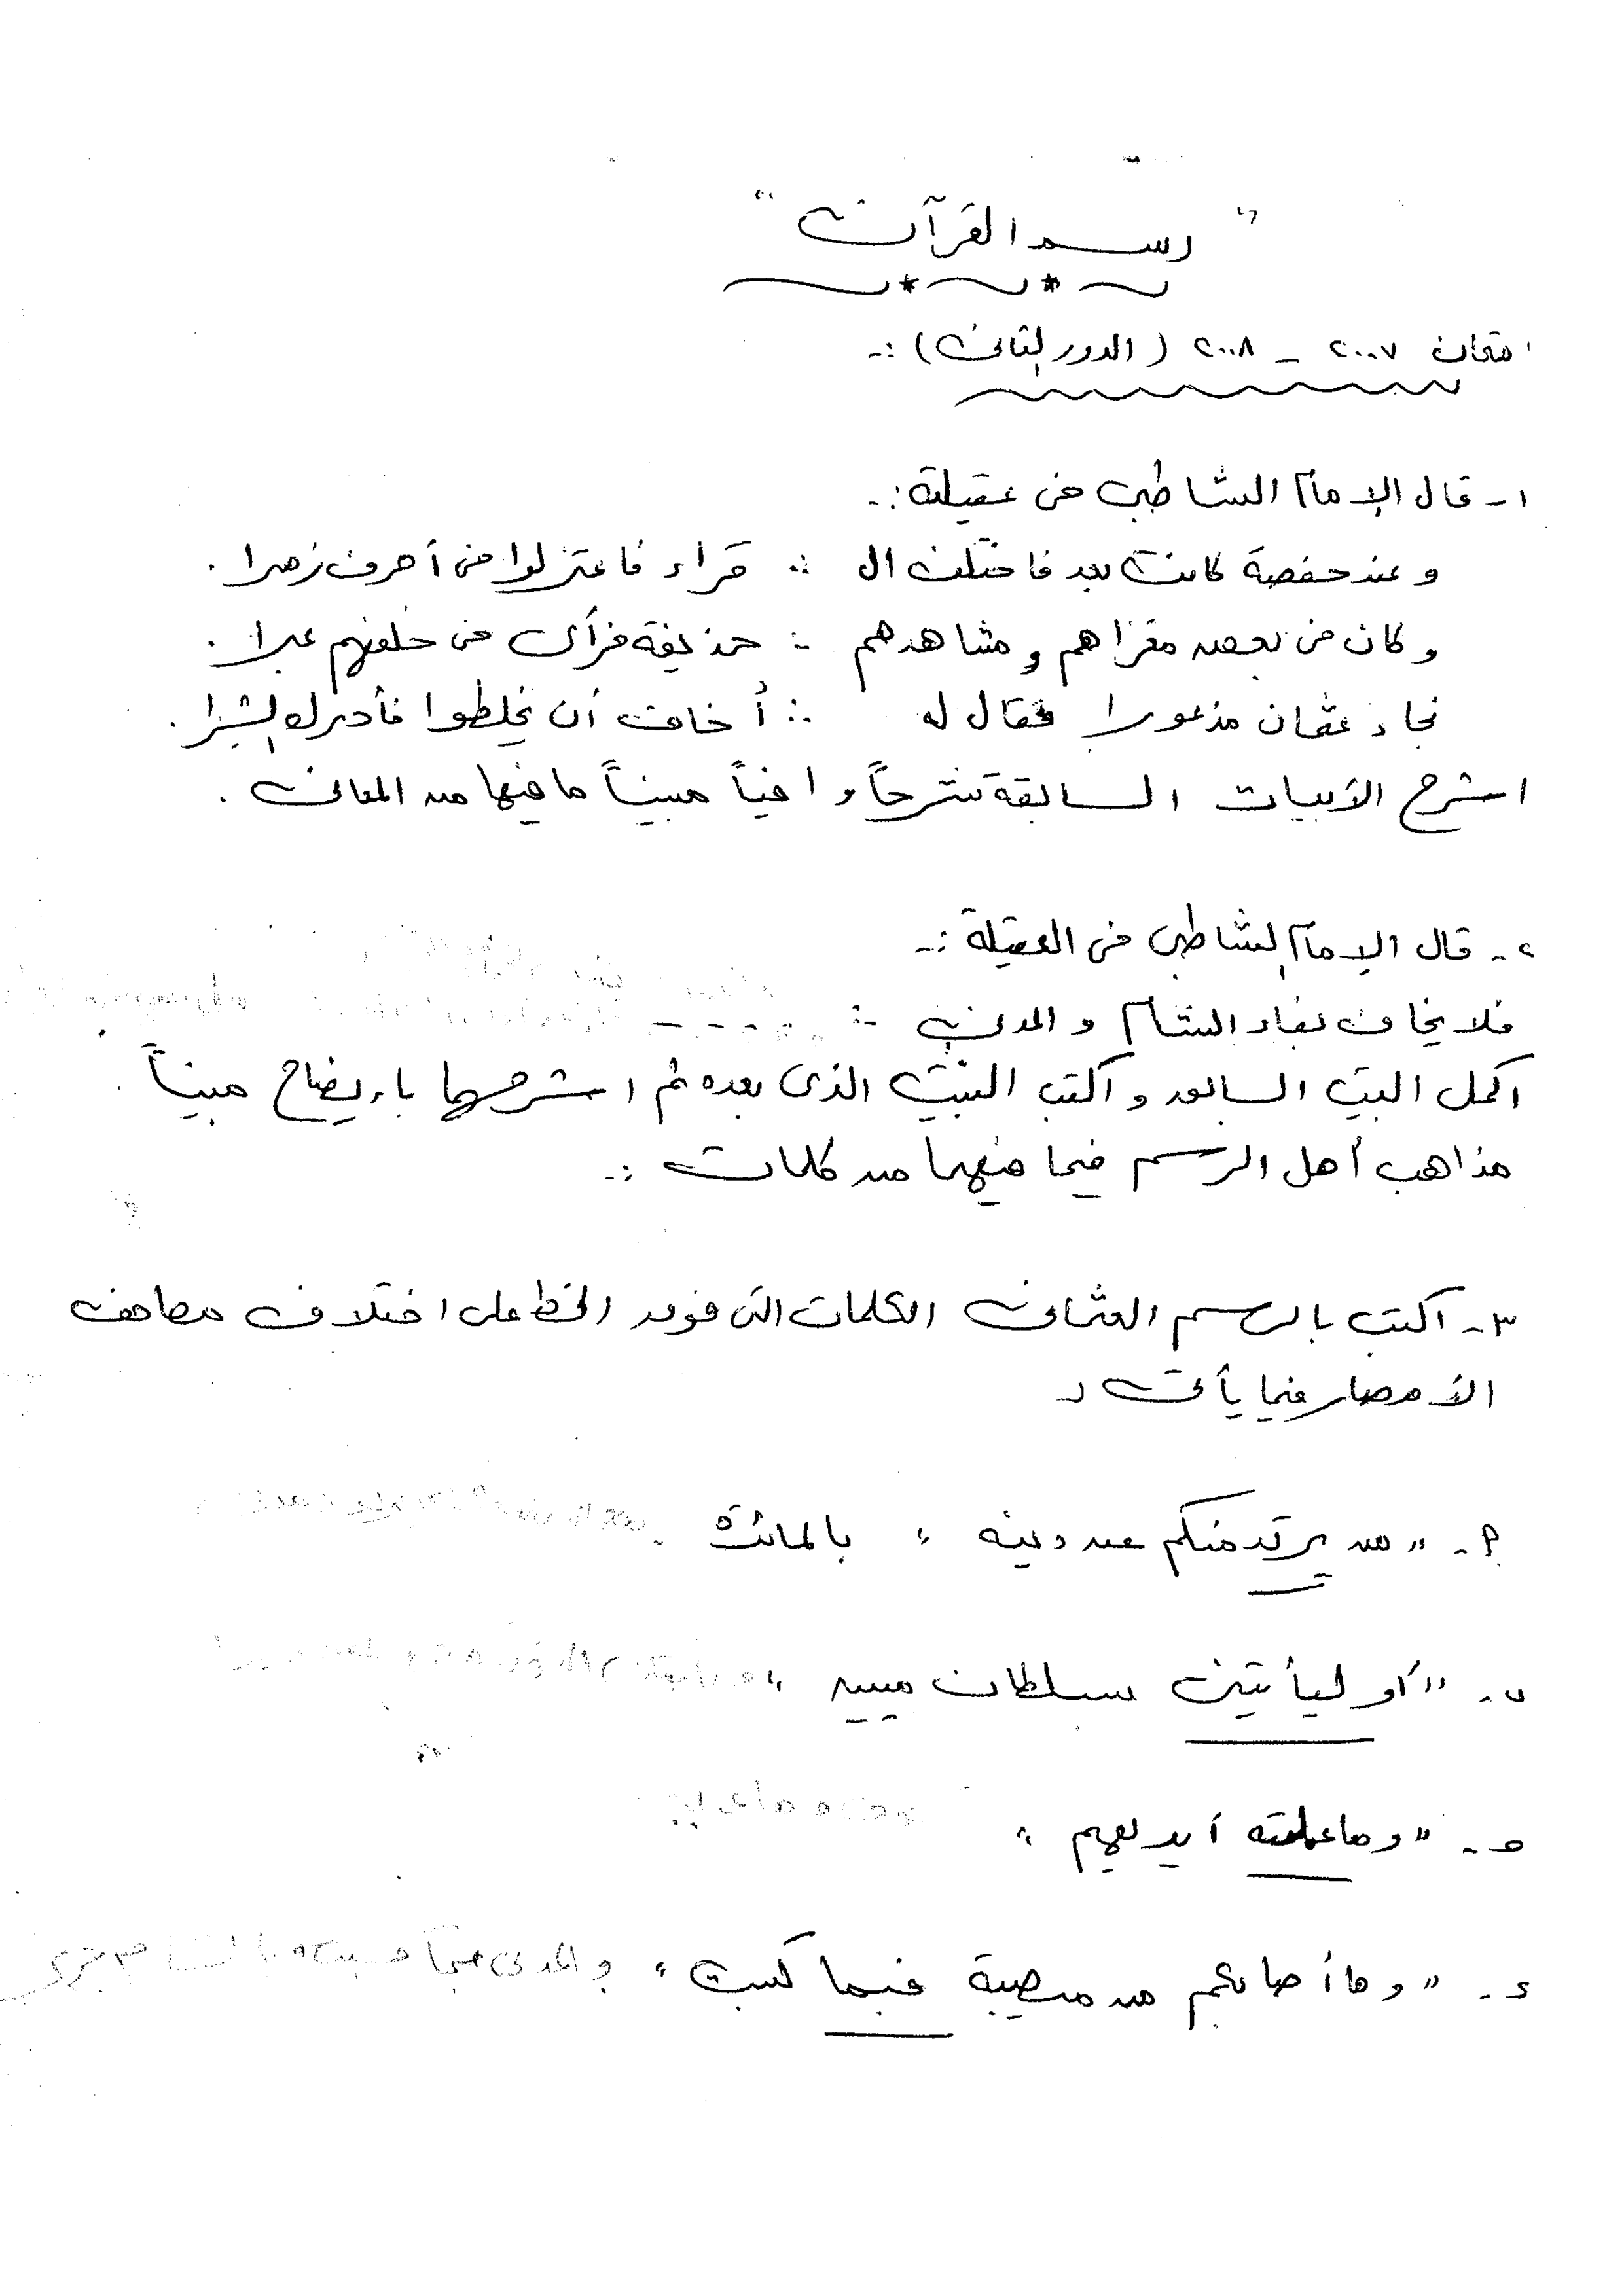 " رسم القرآن "
امتحان ٢٠٠٧ - ٢٠٠٨ ( الدور الثانى ) :-
١- قال الإمام الشاطبى فى عقيلته :-
وعند حفصة كانت بعد فاختلف ال ∴ قراء فاعتزلوا فى أحرف زمرا .
وكان فى بعض مغزاهم ومشاهدهم ∴ حذيفة فرأى فى خلفهم عبرا .
فجاء عثمان مذعورا فقال له ∴ أخاف أن يخلطوا فأدرك البشرا .
اشرح الأبيات السابقة شرحاً وافياً مبيناً ما فيها من المعانى .
٢- قال الإمام الشاطبى فى العقيلة :-
فلا يخاف بفاء الشام والمدنى ∴ - - - -
اكمل البيت السابق واكتب البيت الذى بعده ثم اشرحهما بإيضاح مبيناً
مذاهب أهل الرسم فيما فيهما من كلمات :-
٣- اكتب بالرسم العثمانى الكلمات التى فوق الخط على اختلاف مصاحف
الأمصار فيما يأتى :
أ- " من يرتد منكم عن دينه " بالمائدة
ب- " أو ليأتينى بسلطان مبين "
ج- " وما عملته أيديهم "
د- " وما أصابكم من مصيبة فبما كسبت "